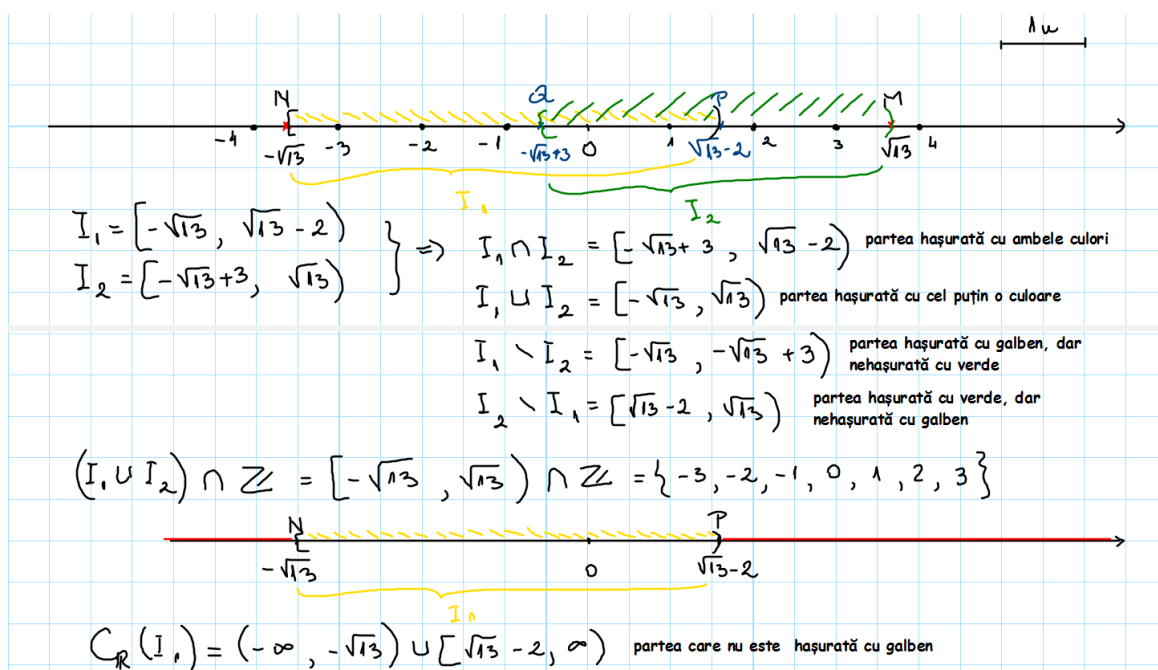 1u
N Q P M
-4 -√13 -3 -2 -1 -√13+3 0 1 √13-2 2 3 √13 4
I₁ I₂
I₁ = [-√13, √13-2)
I₂ = [-√13+3, √13)
} => I₁ ∩ I₂ = [-√13+3, √13-2) partea hașurată cu ambele culori
I₁ ∪ I₂ = [-√13, √13) partea hașurată cu cel puțin o culoare
I₁ \ I₂ = [-√13, -√13+3) partea hașurată cu galben, dar
nehașurată cu verde
I₂ \ I₁ = [√13-2, √13) partea hașurată cu verde, dar
nehașurată cu galben
(I₁ ∪ I₂) ∩ ℤ = [-√13, √13) ∩ ℤ = {-3, -2, -1, 0, 1, 2, 3}
N P
-√13 0 √13-2
I₁
C_ℝ(I₁) = (-∞, -√13) ∪ [√13-2, ∞) partea care nu este hașurată cu galben